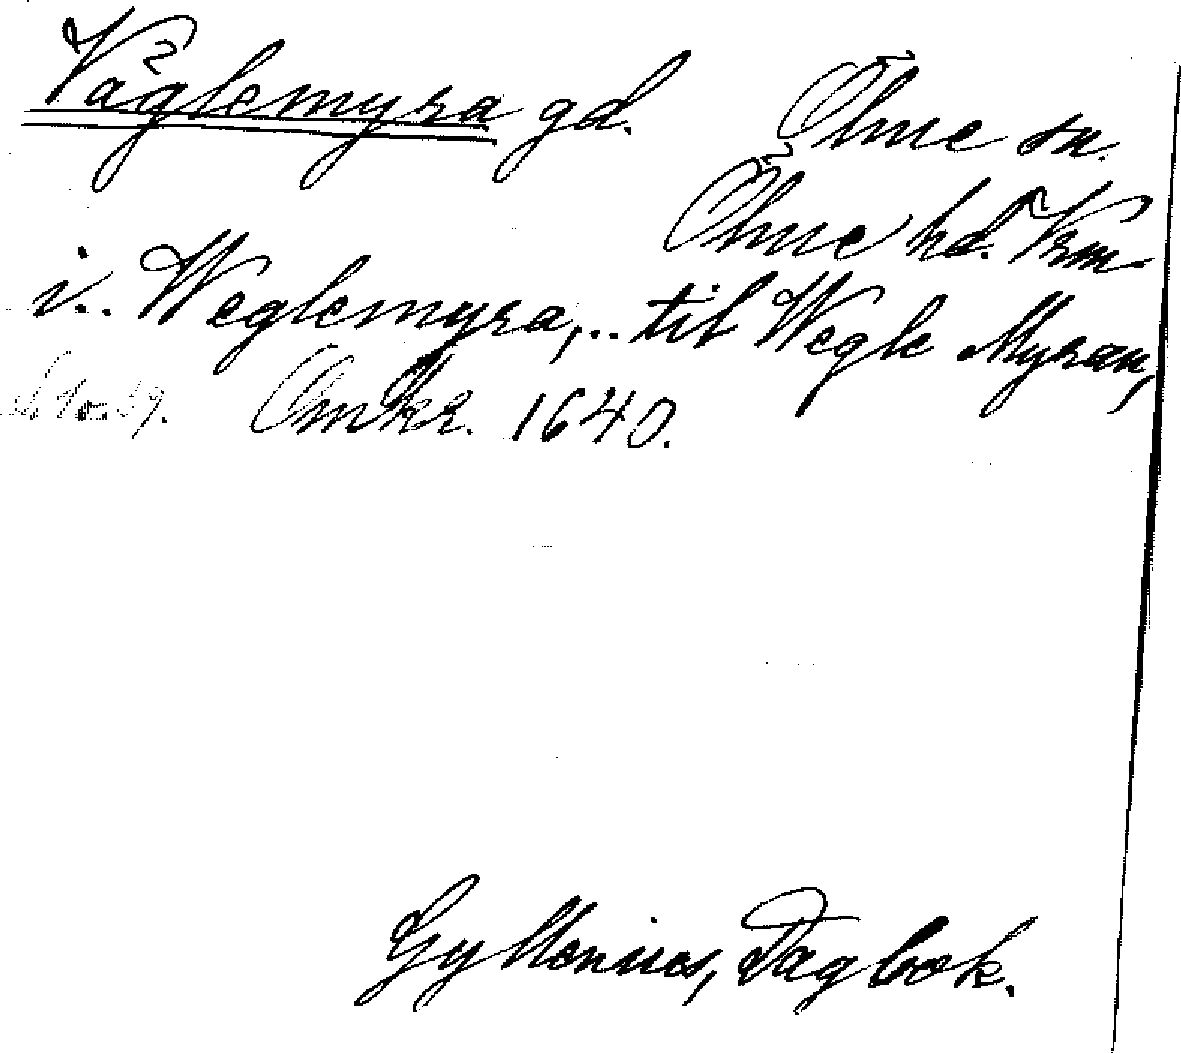 Väglemyra gd. Ölme sn.
Ölme hd. Vrm.
i.. Weglemyra,.. til Wegle Myran,
Omkr. 1640.
Gyllenius, Dagbok.